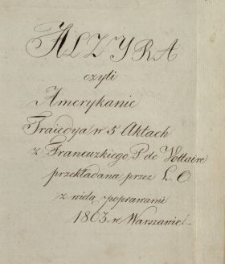 ALZYRA
czyli
Amerykanie
Traiedya w 5 Aktach
z Francuzkiego P. de Voltaire
przekładana przez L. O.
z wielą poprawami
1803. w Warszawie.